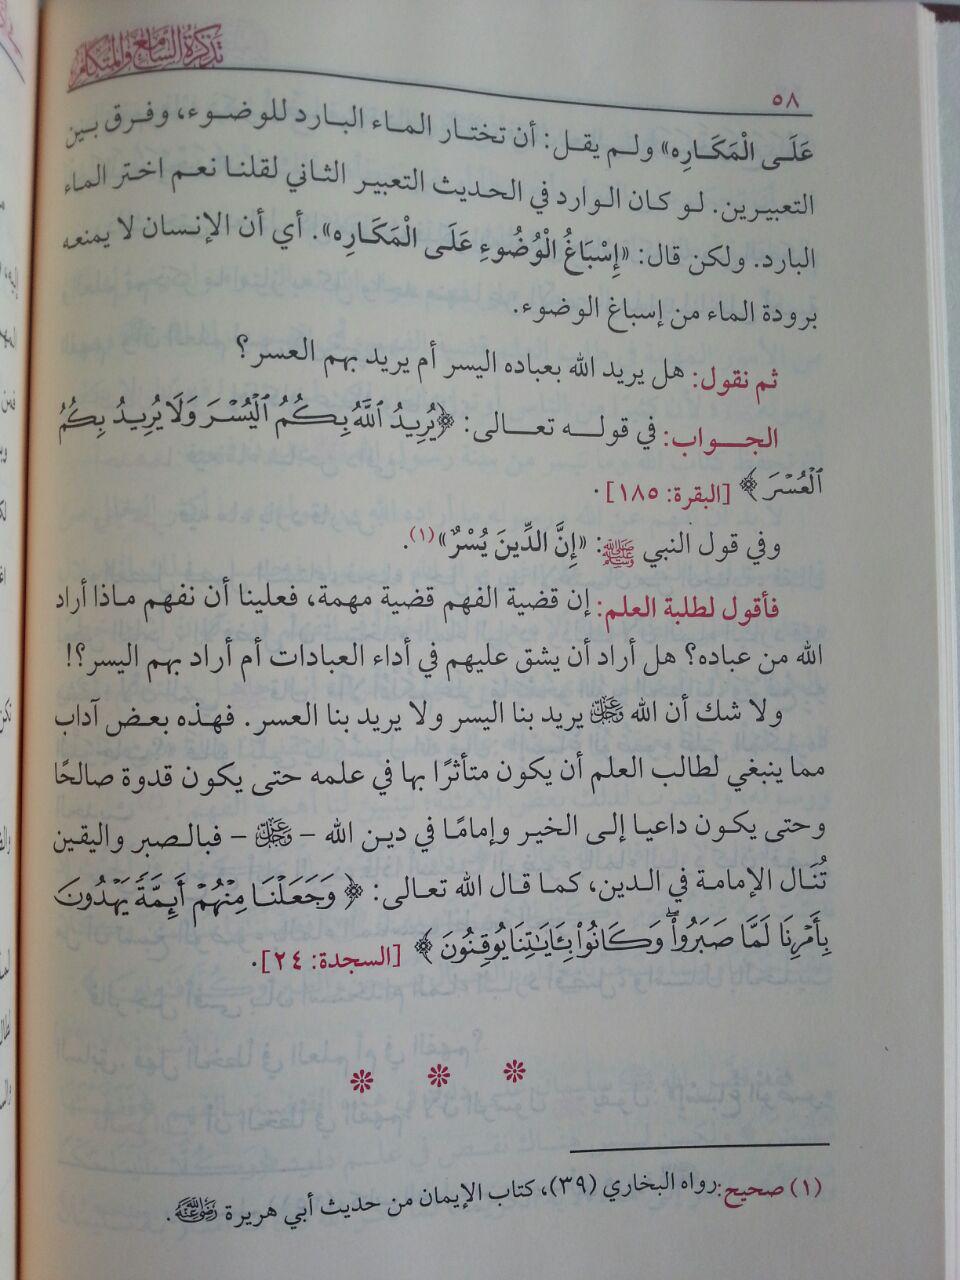 تذكرة السامع والمتكلم
٥٨
عَلَى الْمَكَارِهِ» ولم يقل: أن تختار الماء البارد للوضوء، وفرق بين
التعبيرين. لو كان الوارد في الحديث التعبير الثاني لقلنا نعم اختر الماء
البارد. ولكن قال: «إِسْبَاغُ الْوُضُوءِ عَلَى الْمَكَارِهِ». أي أن الإنسان لا يمنعه
برودة الماء من إسباغ الوضوء.
ثم نقول: هل يريد الله بعباده اليسر أم يريد بهم العسر؟
الجواب: في قوله تعالى: ﴿يُرِيدُ ٱللَّهُ بِكُمُ ٱلْيُسْرَ وَلَا يُرِيدُ بِكُمُ
ٱلْعُسْرَ﴾ [البقرة: ١٨٥].
وفي قول النبي ﷺ: «إِنَّ الدِّينَ يُسْرٌ»(١).
فأقول لطلبة العلم: إن قضية الفهم قضية مهمة، فعلينا أن نفهم ماذا أراد
الله من عباده؟ هل أراد أن يشق عليهم في أداء العبادات أم أراد بهم اليسر؟!
ولا شك أن الله عَزَّوَجَلَّ يريد بنا اليسر ولا يريد بنا العسر. فهذه بعض آداب
مما ينبغي لطالب العلم أن يكون متأثرًا بها في علمه حتى يكون قدوة صالحًا
وحتى يكون داعيا إلى الخير وإمامًا في دين الله – عَزَّوَجَلَّ – فبالصبر واليقين
تُنَال الإمامة في الدين، كما قال الله تعالى: ﴿وَجَعَلْنَا مِنْهُمْ أَئِمَّةً يَهْدُونَ
بِأَمْرِنَا لَمَّا صَبَرُواْ ۖ وَكَانُواْ بِـَٔايَٰتِنَا يُوقِنُونَ﴾ [السجدة: ٢٤].
(١) صحيح: رواه البخاري (٣٩)، كتاب الإيمان من حديث أبي هريرة رَضِيَ اللَّهُ عَنْهُ.